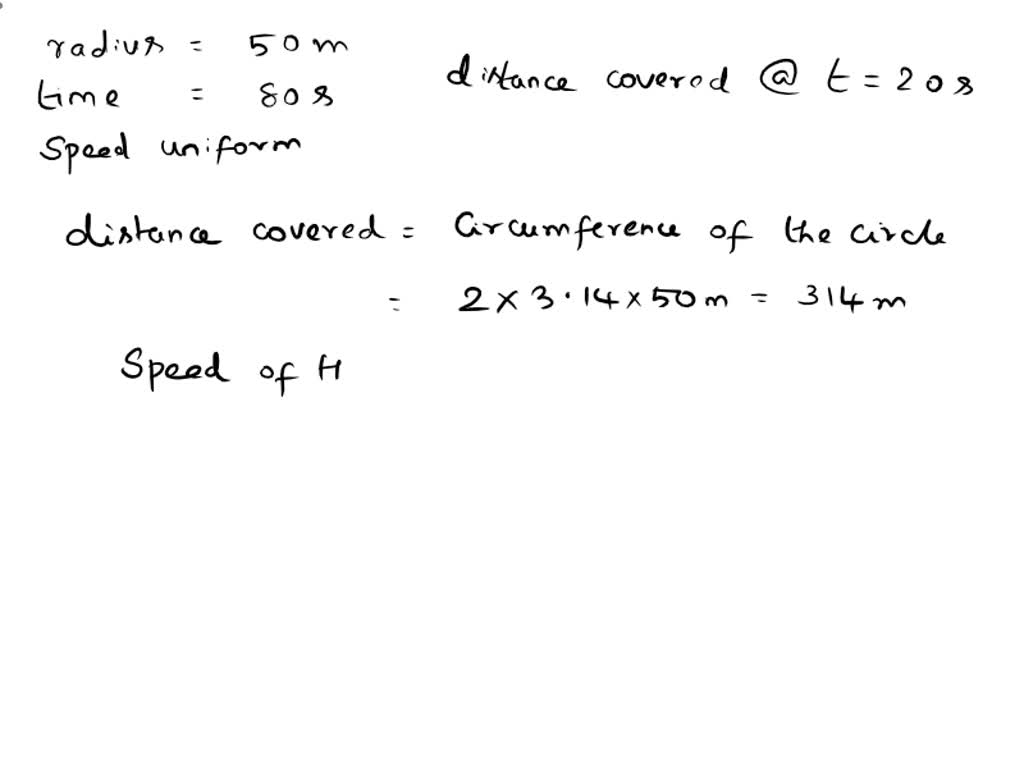 radius = 50m
time = 80s
Speed uniform
distance covered @ t = 20s
distance covered = Circumference of the circle
= 2 × 3.14 × 50m = 314m
Speed of H